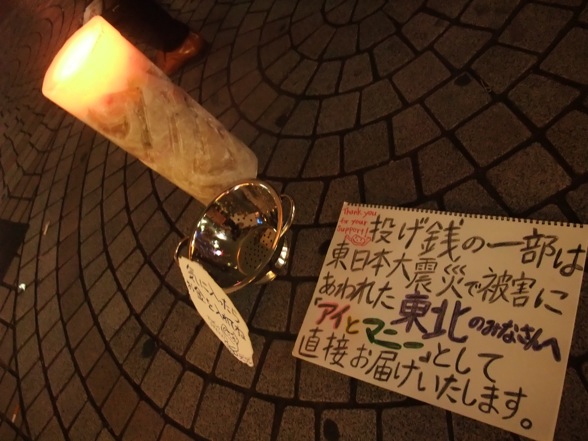 Thank you
for your
Support!
投げ銭の一部は
東日本大震災で被害に
あわれた東北のみなさんへ
「アイとマニー」として
直接お届けいたします。
気に入ったら